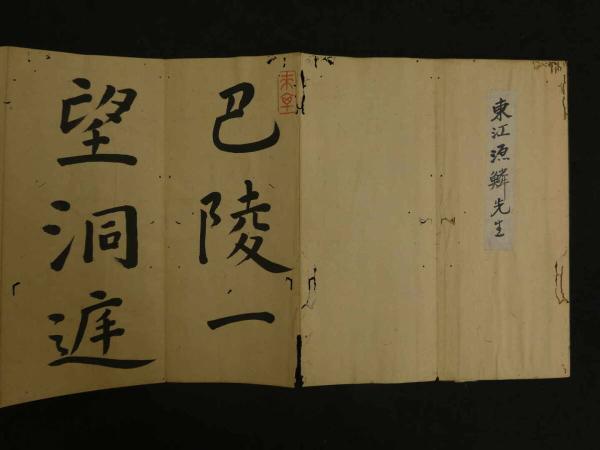 東江源鱗先生
巴陵一
望洞庭